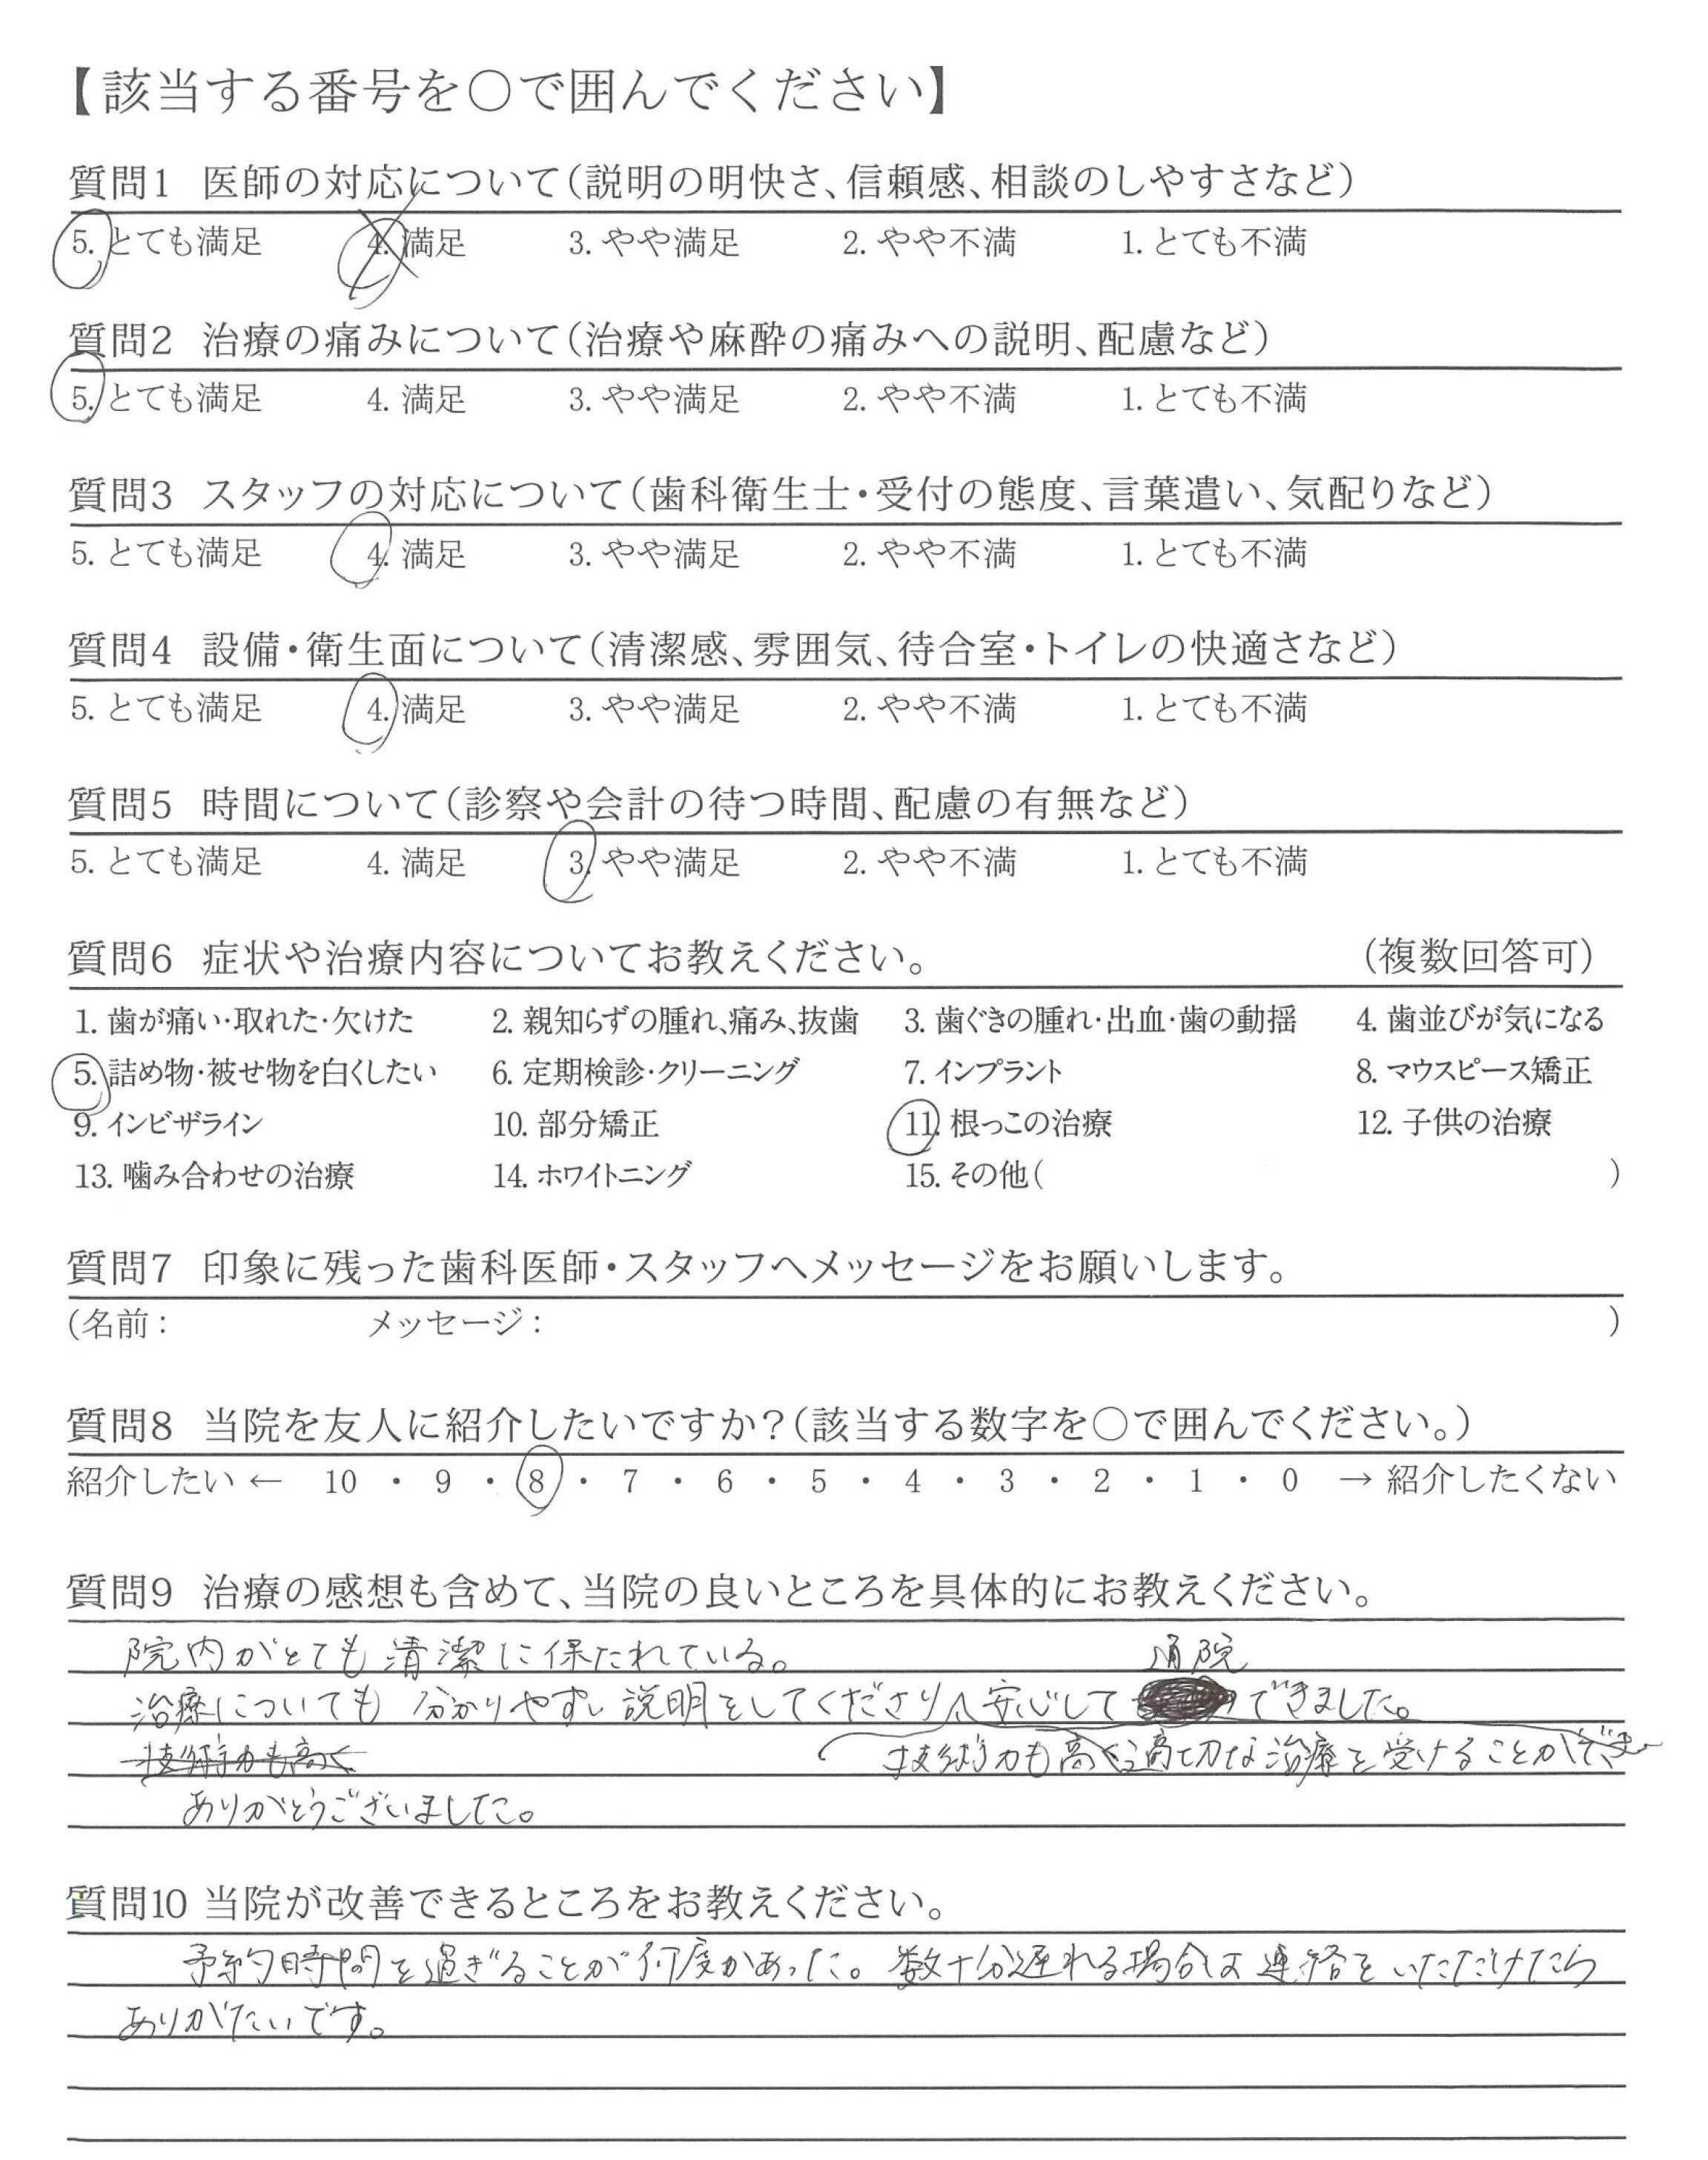 【該当する番号を○で囲んでください】
質問1 医師の対応について(説明の明快さ、信頼感、相談のしやすさなど)
5. とても満足 4. 満足 3. やや満足 2. やや不満 1. とても不満
質問2 治療の痛みについて(治療や麻酔の痛みへの説明、配慮など)
5. とても満足 4. 満足 3. やや満足 2. やや不満 1. とても不満
質問3 スタッフの対応について(歯科衛生士・受付の態度、言葉遣い、気配りなど)
5. とても満足 4. 満足 3. やや満足 2. やや不満 1. とても不満
質問4 設備・衛生面について(清潔感、雰囲気、待合室・トイレの快適さなど)
5. とても満足 4. 満足 3. やや満足 2. やや不満 1. とても不満
質問5 時間について(診察や会計の待つ時間、配慮の有無など)
5. とても満足 4. 満足 3. やや満足 2. やや不満 1. とても不満
質問6 症状や治療内容についてお教えください。 (複数回答可)
1. 歯が痛い・取れた・欠けた 2. 親知らずの腫れ、痛み、抜歯 3. 歯ぐきの腫れ・出血・歯の動揺 4. 歯並びが気になる
5. 詰め物・被せ物を白くしたい 6. 定期検診・クリーニング 7. インプラント 8. マウスピース矯正
9. インビザライン 10. 部分矯正 11. 根っこの治療 12. 子供の治療
13. 噛み合わせの治療 14. ホワイトニング 15. その他( )
質問7 印象に残った歯科医師・スタッフへメッセージをお願いします。
(名前: メッセージ: )
質問8 当院を友人に紹介したいですか?(該当する数字を○で囲んでください。)
紹介したい ← 10 ・ 9 ・ 8 ・ 7 ・ 6 ・ 5 ・ 4 ・ 3 ・ 2 ・ 1 ・ 0 → 紹介したくない
質問9 治療の感想も含めて、当院の良いところを具体的にお教えください。
院内がとても清潔に保たれている。
通院
治療についても分かりやすい説明をしてくださり安心して できました。
技術力も高く 技術力も高く適切な治療を受けることができ
ありがとうございました。
質問10 当院が改善できるところをお教えください。
予約時間を過ぎることが何度かあった。数十分遅れる場合は連絡をいただけたら
ありがたいです。